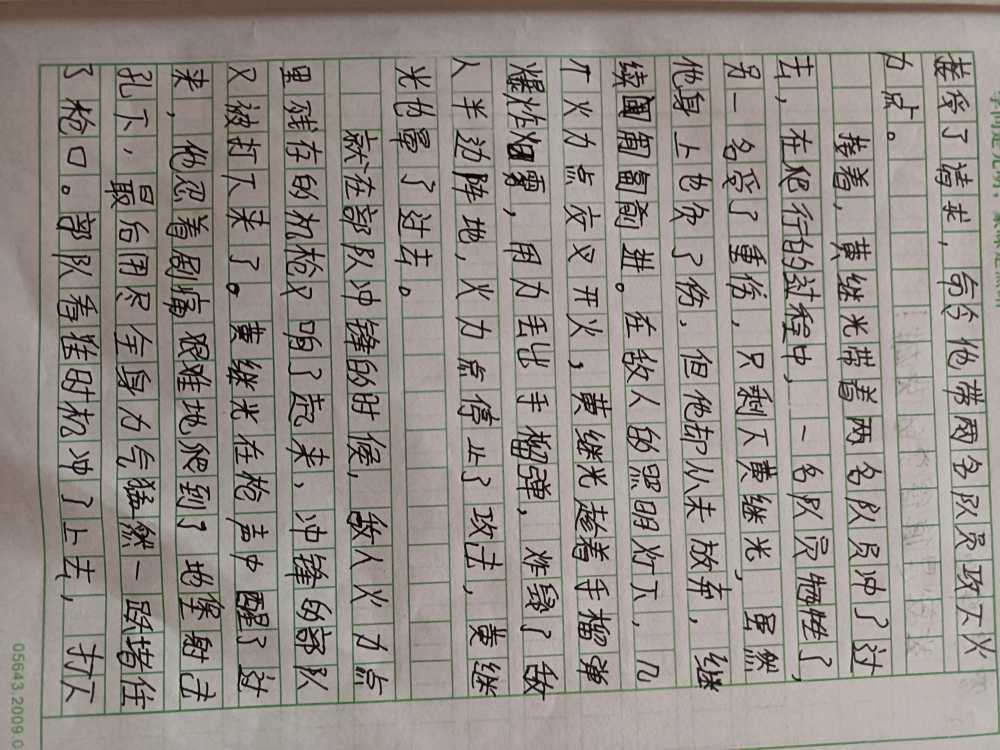 接受了请求，命令他带两名队员攻下火
力点。
接着，黄继光带着两名队员冲了过
去，在爬行的过程中，一名队员牺牲了，
另一名受了重伤，只剩下黄继光，虽然
他身上也负了伤，但他却从未放弃，继
续匍匐前进。在敌人的照明灯下，几
个火力点交叉开火，黄继光趁着手榴弹
爆炸烟雾，用力丢出手榴弹，炸毁了敌
人半边阵地，火力点停止了攻击，黄继
光也晕了过去。
就在部队冲锋的时候，敌人火力点
里残存的机枪又响了起来，冲锋的部队
又被打下来了。黄继光在枪声中醒了过
来，他忍着剧痛艰难地爬到了地堡射击
孔下，最后用尽全身力气猛然一跃堵住
了枪口。部队看准时机冲了上去，打下
05643.2009.0